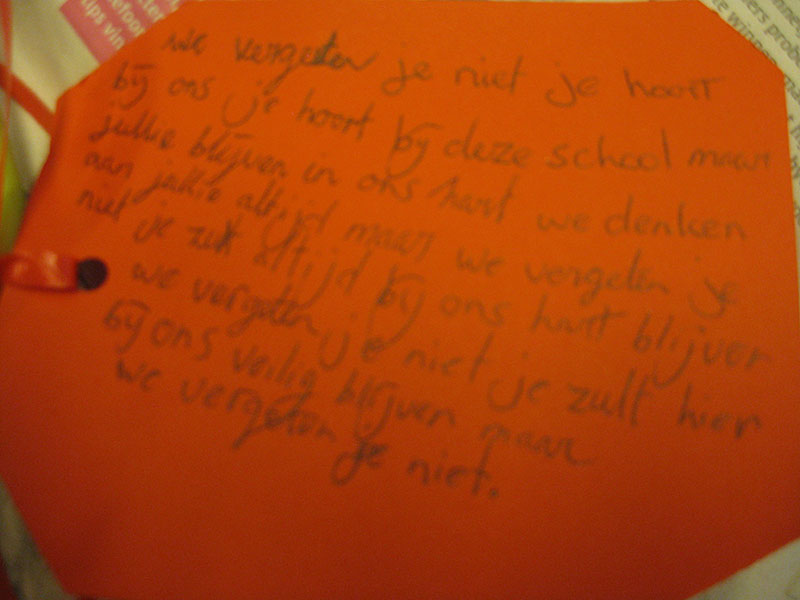 we vergeten je niet je hoort
bij ons je hoort bij deze school maar
jullie blijven in ons hart we denken
aan jullie altijd maar we vergeten je
niet je zult altijd bij ons hart blijven
we vergeten je niet je zult hier
bij ons veilig blijven maar
we vergeten je niet.